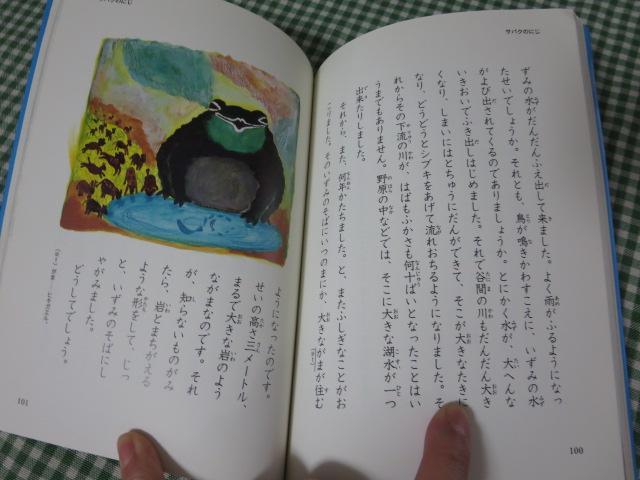 サバクのにじ
ずみの水がだんだんふえ出して来ました。よく雨がふるようになっ
たせいでしょうか。それとも、鳥が鳴きかわすこえに、いずみの水
がよび出されてくるのでありましょうか。とにかく水が、大へんな
いきおいでふき出しはじめました。それで谷間の川もだんだん大き
くなり、しまいにはとちゅうにだんができて、そこが大きなたきに
なり、どうどうとシブキをあげて流れおちるようになりました。そ
れからその下流の川が、はばもふかさも何十ばいとなったことはい
うまでもありません。野原の中などでは、そこに大きな湖水が一つ
出来たりしました。
それから、また、何年かたちました。と、またふしぎなことがお
こりました。そのいずみのそばにいつのまにか、大きながまが住む
100
サバクのにじ
ようになったのです。
せいの高さ三メートル、
まるで大きな岩のよう
ながまなのです。それ
が、知らないものがみ
たら、岩とまちがえる
ような形をして、じっ
と、いずみのそばにし
ゃがみました。
どうしてでしょう。
101